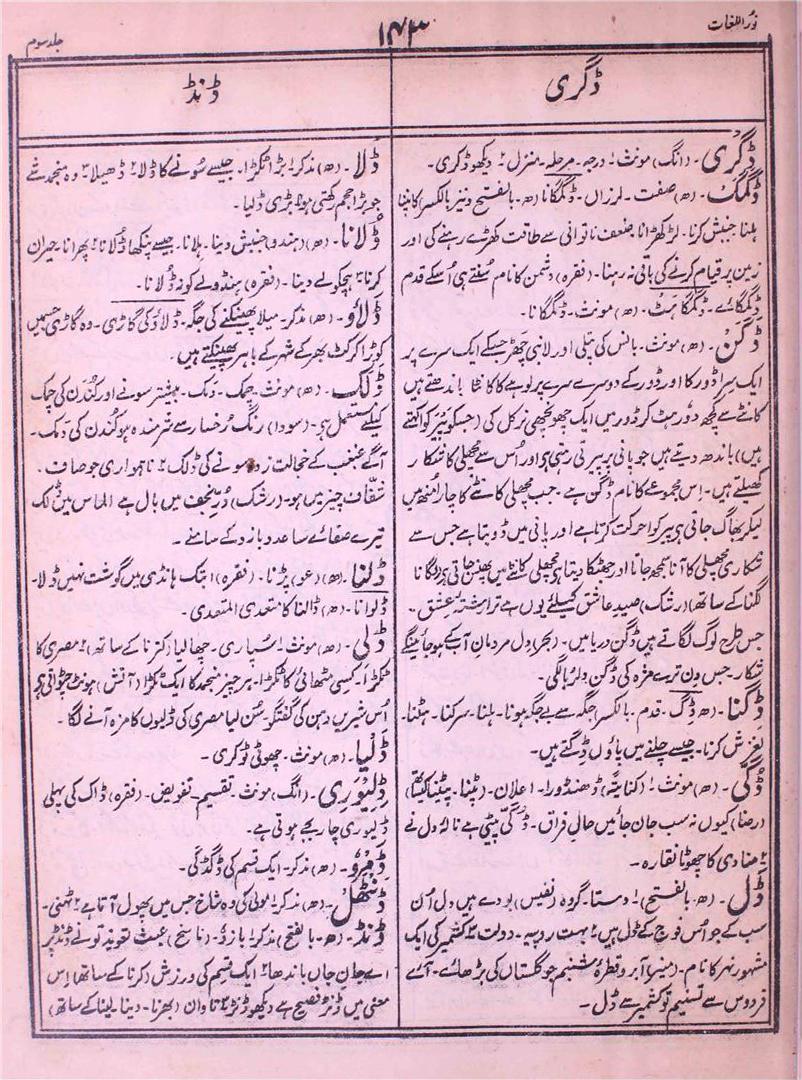 نور اللغات
۱۴۳
جلد سوم
ڈگری
ڈگری۔ (انگ) مونث ۱ درجہ۔ مرحلہ۔ منزل ۲ دیکھو ڈکری۔
ڈگمگ۔ (ھ) صفت۔ لرزاں۔ ڈگمگانا (ھ۔ بالفتح ونیز بالکسر) کانپنا
ہلنا جنبش کرنا۔ لڑکھڑانا ضعف ناتوانی سے طاقت کھڑے رہنے کی اور
زمین پر قیام کرنے کی باقی نہ رہنا۔ (فقرہ) دشمن کا نام سنتے ہی اُسکے قدم
ڈگمگائے۔ ڈگمگاہٹ۔ (ھ) مونث۔ ڈگمگانا۔
ڈگن۔ (ھ) مونث۔ بانس کی پتلی اور لانبی چھڑ جسکے ایک سرے پر
ایک سرا ڈور کا اور ڈور کے دوسرے سرے پر لوہے کا کانٹا باندھتے ہیں
کانٹے سے کچھ دور ہٹ کر ڈور میں ایک چھوٹچھی نرکل کی (جسکو تیر کوا کہتے
ہیں) باندھ دیتے ہیں جو پانی پر تیرتی رہتی ہی اور اُس سے مچھلی کا شکار
کھیلتے ہیں۔ اس مجموعے کا نام ڈگن ہے۔ جب مچھلی کانٹے کا چارا منھ میں
لیکر بھاگ جاتی ہی تیر کوا حرکت کرتا ہے اور پانی میں ڈوبتا ہے جس سے
شکاری مچھلی کا آنا سمجھ جاتا اور جھٹکا دیتا ہی مچھلی کانٹے میں پھنس جاتی ہی (لگانا
لگنا کے ساتھ) (رشک) صید عاشق کیلئے یوں ہے ترا رشتۂ عشق۔
جس طرح لوگ لگاتے ہیں ڈگن دریا میں۔ (بحر) دل مردمان آب کے ہو جائینگے
شکار۔ جس دن ترے غمزہ کی ڈگن دلربا لگی۔
ڈگنا۔ (ھ) ڈگ۔ قدم۔ بالکسر) جگہ سے بے جگہ ہونا۔ ہلنا۔ سرکنا۔ ہٹنا۔
لغزش کرنا۔ جیسے چلنے میں پاؤں ڈگتے ہیں۔
ڈگی۔ (ھ) مونث۔ ۱ (کنایتہً) ڈھنڈورا۔ اعلان۔ (پٹنا۔ پیٹنا کیساتھ)
(رضا) کیوں نہ سب جان جائیں حال فراق۔ ڈگی پیٹی ہے نالۂ دل نے
۲ منادی کا چھوٹا نقارہ۔
ڈل۔ (ھ۔ بالفتح) ۱۔ دستا۔ گروہ (نفیس) بودے ہیں دل اُن
سب کے جو اُس فوج کے ڈل ہیں ۲ بہت روپیہ۔ دولت ۳ کشمیر کی ایک
مشہور نہر کا نام۔ (منیر) آبرو قطرۂ شبنم جو گلستاں کی بڑھائے۔ آئے
فردوس سے تسنیم تو کشمیر سے ڈل۔
ڈنڈ
ڈلا۔ (ھ) مذکر ۱ بڑا ٹکڑا۔ جیسے سونے کا ڈلا ۲ ڈھیلا ۳ وہ منجمد شے
جو بڑا حجم رکھتی ہو ۴ بڑی ڈلیا۔
ڈلانا۔ (ھ) (ہندو) جنبش دینا۔ ہلانا۔ جیسے پنکھا ڈلانا ۲ پھرانا۔ حیران
کرنا ۳ ہچکولے دینا۔ (فقرہ) ہنڈولے کو نہ ڈلانا۔
ڈلاؤ۔ (ھ) مذکر۔ میلا پھینکنے کی جگہ۔ ڈلاؤ کی گاڑی۔ وہ گاڑی جسمیں
کوڑا کرکٹ بھر کے شہر کے باہر پھینکتے ہیں۔
ڈلک۔ (ھ) مونث۔ چمک۔ دمک۔ بیشتر سونے اور کندن کی چمک
کیلئے مستعمل ہی۔ (سودا) رنگ رخسار سے شرمندہ ہو کندن کی دمک۔
آگے غبغب کے خجالت زدہ سونے کی ڈلک ۲ ناہمواری جو صاف۔
شفاف چیز میں ہو۔ (رشک) دُرّ نجف میں بال ہے الماس میں ڈلک
تیرے صفائے ساعد و بازو کے سامنے۔
ڈلنا۔ (ھ) (عو) پڑنا۔ (فقرہ) ابتک ہانڈی میں گوشت نہیں ڈلا۔
ڈلوانا۔ (ھ) ڈالنا کا متعدی المتعدی۔
ڈلی۔ (ھ) مونث ۱ سپاری۔ چھالیا (کترنا کے ساتھ) ۲ مصری کا
ٹکڑا۔ کسی مٹھائی کا ٹکڑا۔ ہر چیز منجمد کا ایک ٹکڑا (آتش) ہونٹ چٹواتی ہی
اُس شیریں دہن کی گفتگو۔ سُن لیا مصری کی ڈلیوں کا مزہ آنے لگا۔
ڈلیا۔ (ھ) مونث۔ چھوٹی ٹوکری۔
ڈلیوری۔ (انگ) مونث۔ تقسیم۔ تفویض۔ (فقرہ) ڈاک کی پہلی
ڈلیوری چار بجے ہوتی ہے۔
ڈمرو۔ (ھ) مذکر۔ ایک قسم کی ڈگڈگی۔
ڈنٹھل۔ (ھ) مذکر ۱ مولی کی وہ شاخ جس میں پھول آتا ہے ۲ ٹہنی۔
ڈنڈ۔ (ھ۔ بالفتح) مذکر ۱ بازو۔ (ناسخ) عبث تعویذ تو نے ڈنڈ پر
اے جان جاں باندھا ۲ ایک قسم کی ورزش (کرنا کے ساتھ) اس
معنی میں ڈنڑ فصیح ہے دیکھو ڈنڑ ۳ تاوان (بھرنا۔ دینا۔ لینا کے ساتھ)